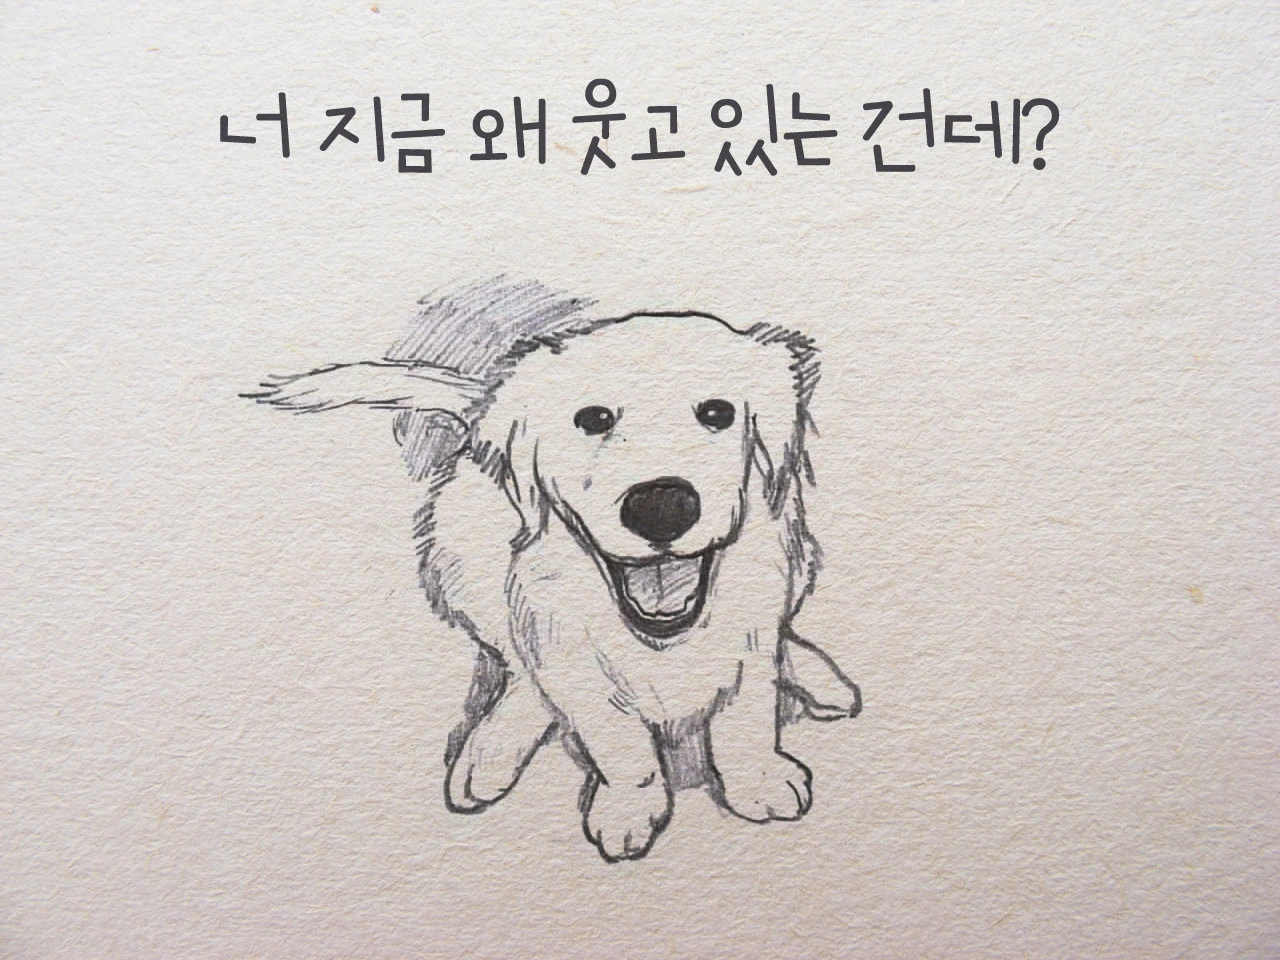 너 지금 왜 웃고 있는 건데?